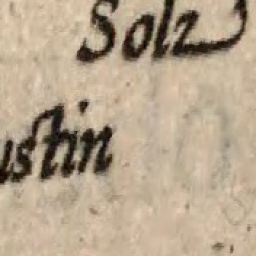 Solz
ustin